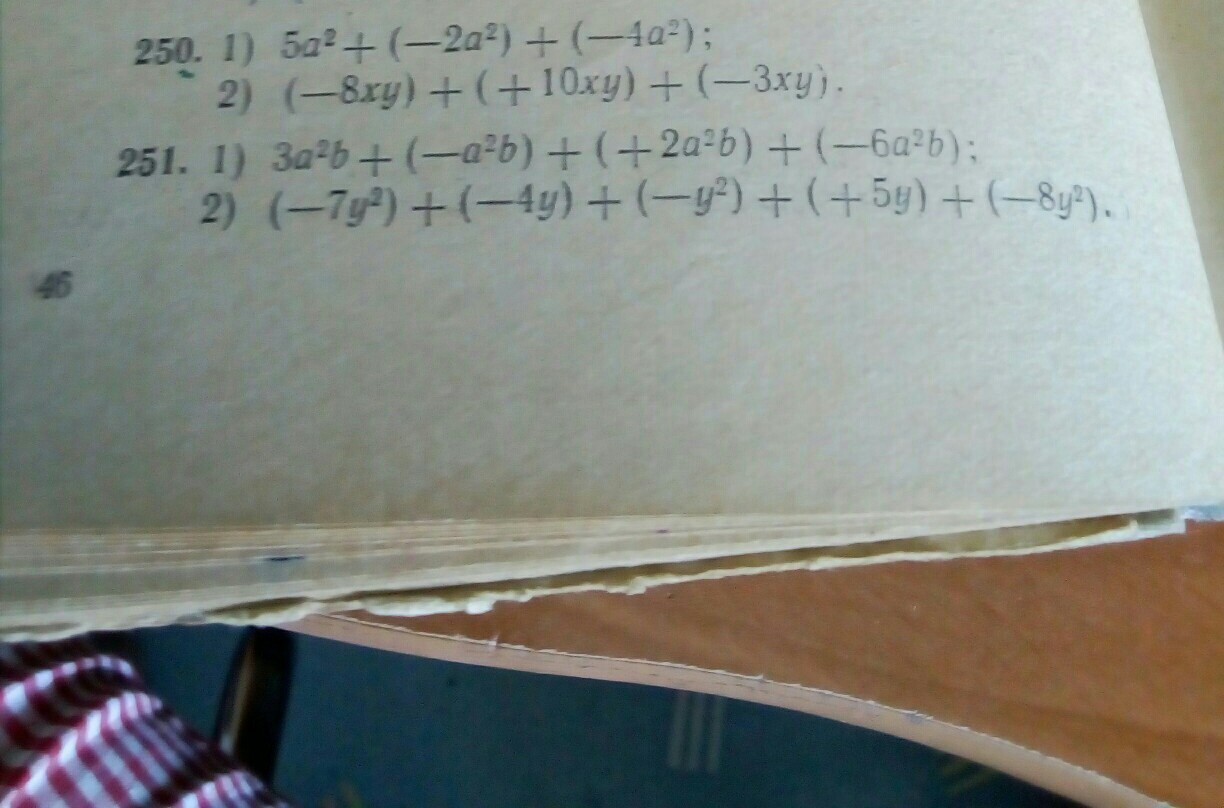 250. 1) 5a² + (—2a²) + (—4a²);
2) (—8xy) + (+10xy) + (—3xy).
251. 1) 3a²b + (—a²b) + (+2a²b) + (—6a²b);
2) (—7y²) + (—4y) + (—y²) + (+5y) + (—8y²).
46